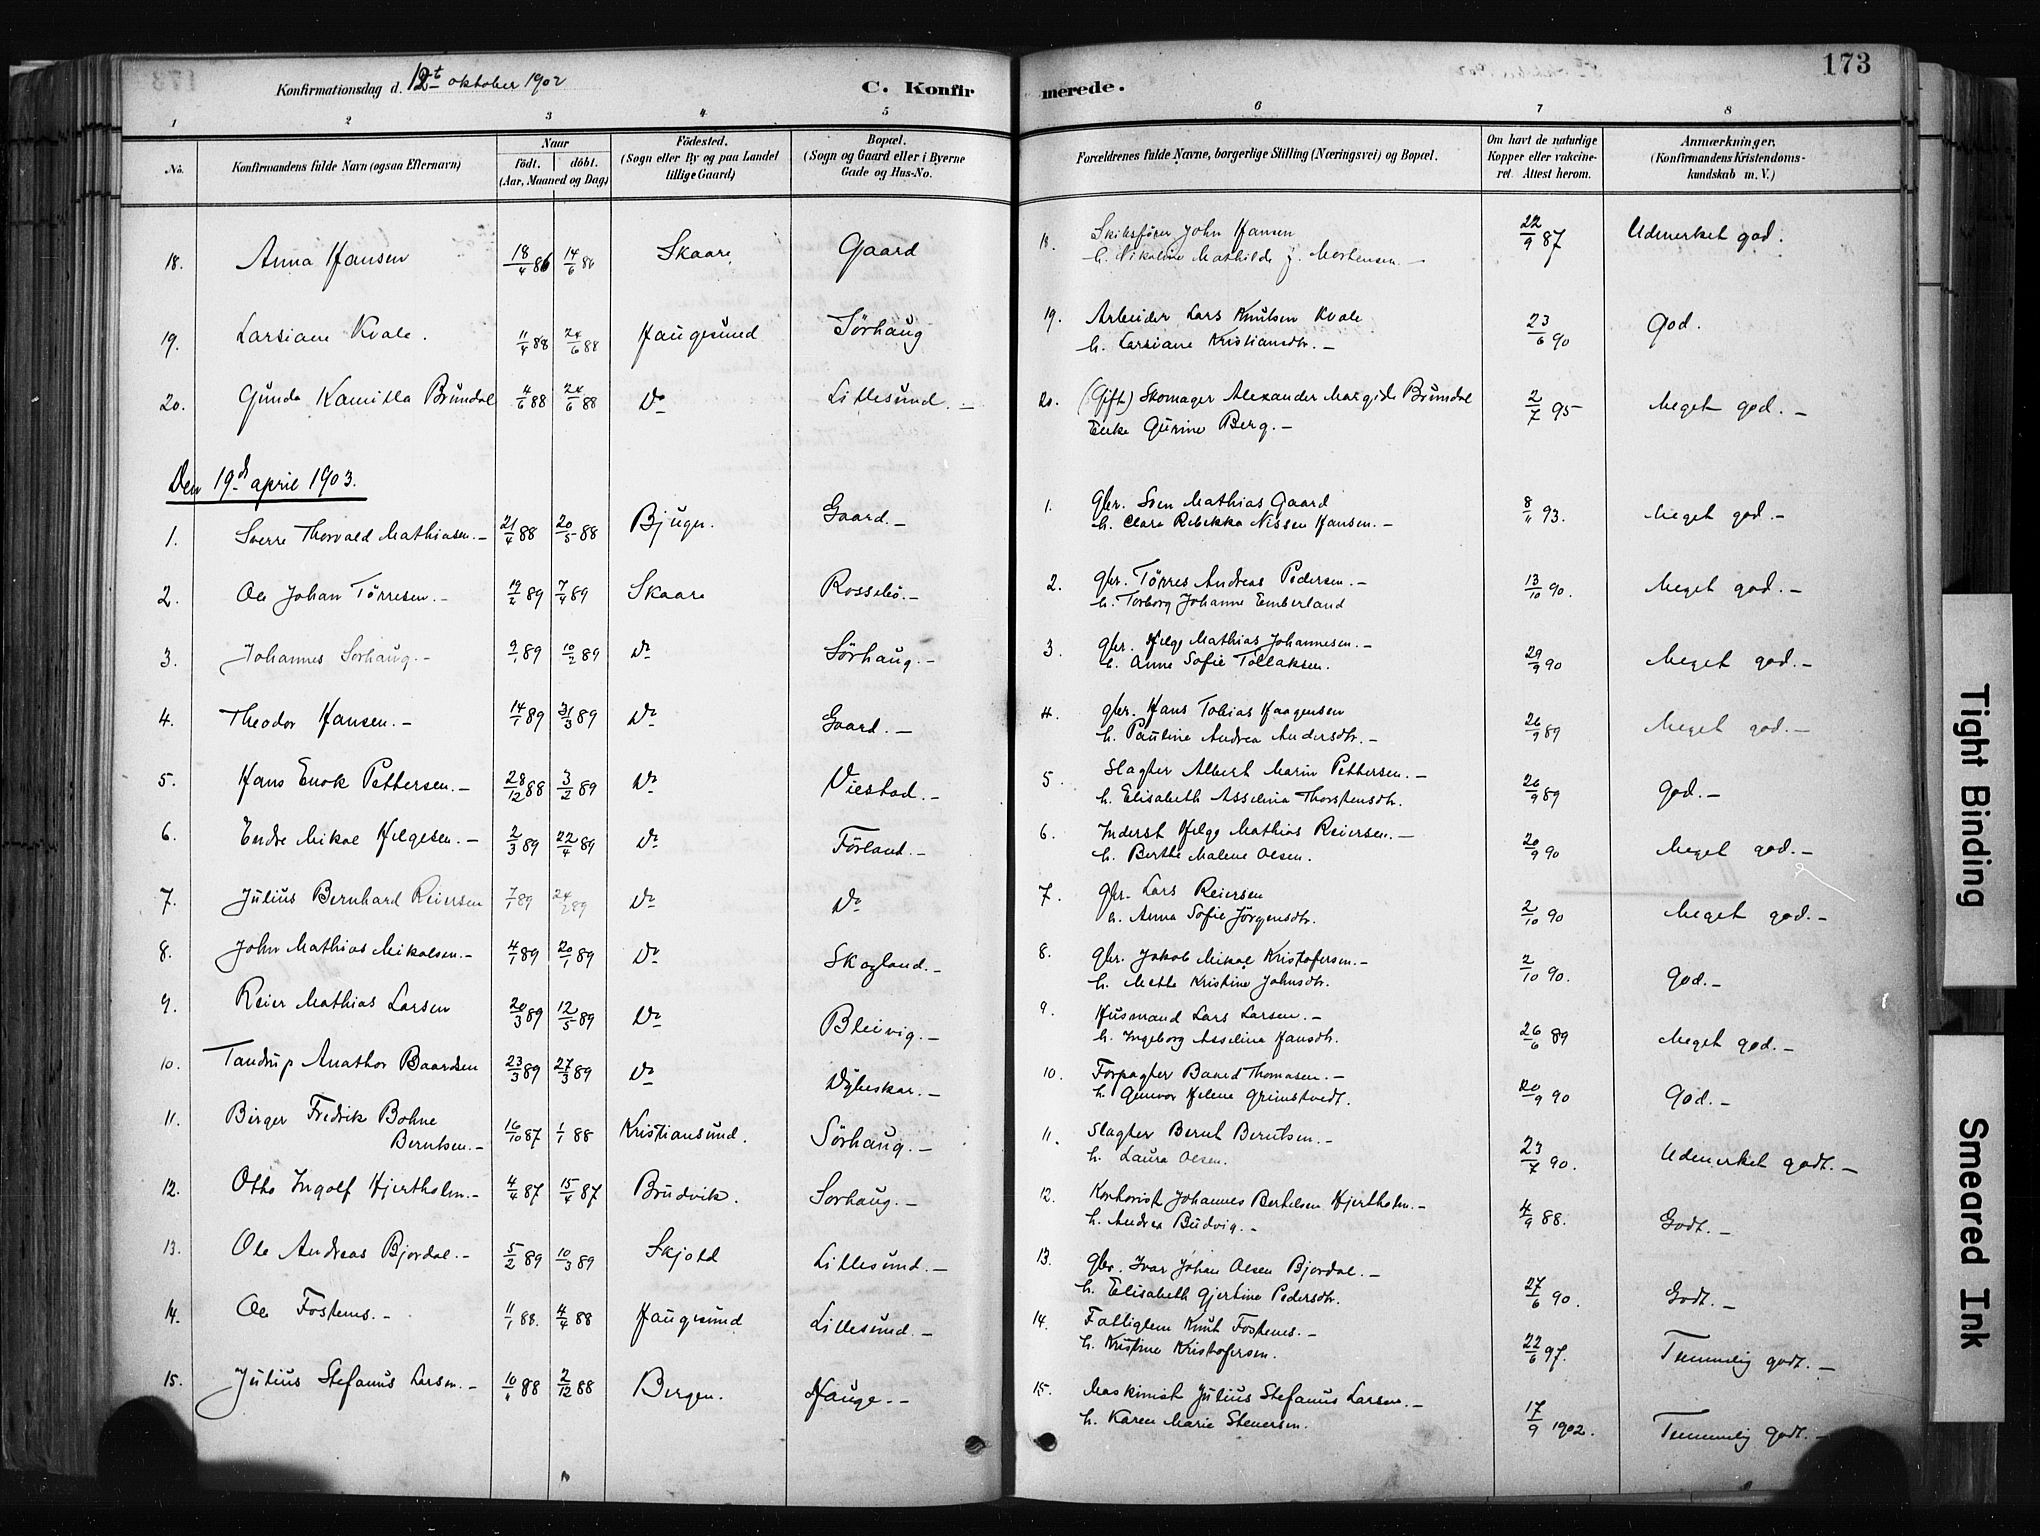 173
Konfirmationsdag d. 12t oktober 1902
C. Konfir
merede.
1 2 3 4 5 6 7 8
No.
Konfirmandens fulde Navn (ogsaa Efternavn)
Naar
født. døbt.
(Aar, Maaned og Dag)
Fødested.
(Sogn eller By og paa Landet
tillige Gaard)
Bopæl.
(Sogn og Gaard eller i Byerne
Gade og Hus-No.
Forældrenes fulde Navne, borgerlige Stilling (Næringsvei) og Bopæl.
Om havt de naturlige
Kopper eller vakcine-
ret. Attest herom.
Anmærkninger.
(Konfirmandens Kristendoms-
kundskab m. V.)
18. Anna Hansen 18/4 86 14/6 86 Skaare Gaard 18. Skibsfører John Hansen 22/9 87 Udmerket god.
h. Nikoline Mathilde f. Mortensen. -
19. Larsiane Kvale. 11/4 88 24/6 88 Haugesund Sørhaug 19. Arbeider Lars Knutsen Kvale 23/6 90 God.
h. Larsiane Kristiansdtr. -
20. Gunda Kamilla Brundal 4/6 88 24/6 88 Do Lillesund. - 20. (Gift) Skomager Alexander Brundal 2/7 95 Meget god. -
Enke Gurine Berg. -
Den 19d april 1903.
1. Sverre Thorvald Mathiasen. - 21/4 88 20/5 88 Bjugn. Gaard. - 1. Gbr. Sven Mathias Gaard 8/11 93. Meget god. -
h. Clara Rebekka Nissen Hansen. -
2. Ole Johan Tørresen. - 19/2 89 7/4 89 Skaare Rossebø. - 2. Gbr. Tørres Andreas Pedersen. - 13/10 90. Meget god. -
h. Torborg Johanne Emberland
3. Johannes Sørhaug. - 9/1 89 10/2 89 Do Sørhaug. - 3. Gbr. Helge Mathias Johannesen. - 29/9 90 Meget god. -
h. Anne Sofie Tollaksen.
4. Theodor Hansen. - 14/1 89 31/3 89 Do Gaard. - 4. Gbr. Hans Tobias Haagensen 26/9 89 Meget god. -
h. Pauline Andrea Andersdtr. -
5. Hans Enok Pettersen. - 28/12 88 3/2 89 Do Viestad. - 5. Slagter Albert Marin Pettersen. - 26/9 89 God. -
h. Elisabeth Asselina Thorstensdtr.
6. Endre Mikal Helgesen. - 2/3 89 22/4 89 Do Førland. - 6. Inderst Helge Mathias Reiersen. - 20/9 90 Meget god. -
h. Berthe Malene Olsen.
7. Julius Bernhard Reiersen 7/1 89 24/2 89 Do Do 7. Gbr. Lars Reiersen 2/10 90 Meget god. -
h. Anna Sofie Jørgensdtr.
8. John Mathias Mikalsen. - 4/1 89 20/1 89 Do Skogland. - 8. Gbr. Jakob Mikal Kristofersen. - 2/10 90. God. -
h. Mette Kristine Johnsdtr.
9. Reier Mathias Larsen 20/3 89 12/5 89 Do Bleivig. - 9. Husmand Lars Larsen. - 26/6 89 Meget god. -
h. Ingeborg Asseline Hansdtr.
10. Tandrup Anathor Baardsen 23/3 89 27/3 89 Do Dybeskar. - 10. Forpagter Baard Thomasen. - 20/9 90 God. -
h. Gunvor Helene Grimstvedt.
11. Birger Fredrik Bohne
Berntsen. - 16/10 87 1/1 88 Kristiansund. Sørhaug. - 11. Slagter Bernt Berntsen. - 23/7 90. Udmerket godt. -
h. Laura Olsen.
12. Otto Ingolf Hjertholm. - 4/4 87 15/4 87 Brudvik. Sørhaug. - 12. Kontorist Johannes Bertelsen Hjertholm. - 4/9 88. Godt. -
h. Andrea Budvig. -
13. Ole Andreas Bjordal. - 5/2 89 10/3 89 Skjold Lillesund. - 13. Gbr. Ivar Johan Olsen Bjordal. - 27/6 90. Godt. -
h. Elisabeth Gjertine Pedersdtr.
14. Ole Fostenes. - 11/1 88. 4/4 88 Haugesund Lillesund. - 14. Fattiglem Knut Fostenes. - 22/6 97. Temmelig godt. -
h. Kristine Kristofersen.
15. Julius Stefanus Larsen. - 10/9 88 2/12 88 Bergen. Hauge. - 15. Maskinist Julius Stefanus Larsen. - 17/9 1902. Temmelig godt. -
h. Karen Marie Stenersen.
Tight Binding
Smeared Ink